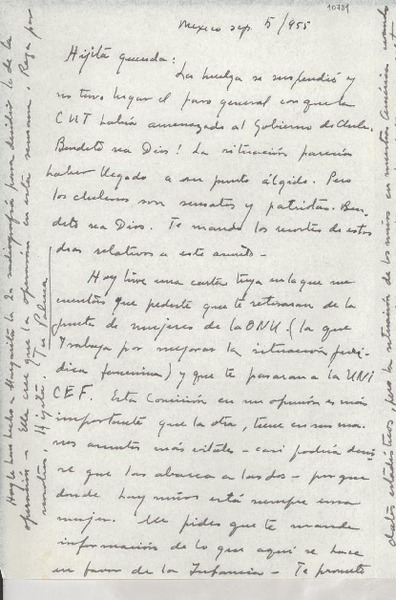 10781
Mexico sep. 5/955
Hijita querida:
La huelga se suspendió y
no tuvo lugar el paro general con que la
CUT había amenazado al Gobierno de Chile.
Bendito sea Dios! La situación parecía
haber llegado a su punto álgido. Pero
los chilenos son sensatos y patriotas. Ben-
dito sea Dios. Te mando los recortes de estos
días relativos a este asunto -
Hoy tuve una carta tuya en la que me
cuentas que pediste que te retiraran de la
junta de mujeres de la ONU (la que
trabaja por mejorar la situación jurí-
dica femenina) y que te pasaran a la UNI
CEF. Esta Comisión en mi opinión es más
importante que la otra, tiene en sus ma-
nos asuntos más vitales - casi podría decir-
se que los abarca a todos - porque
donde hay niños está siempre una
mujer. Me pides que te mande
información de lo que aquí se hace
en favor de la Infancia - Te prometo
datos estadísticos, pero la situación de los niños en nuestra América cuando
Hoy le han hecho a Margarita la 2a radiografía para decidir lo de la
operación - Ella cree que la operarán en esta semana. Reza por
nosotras, Hijita. Tu Palma